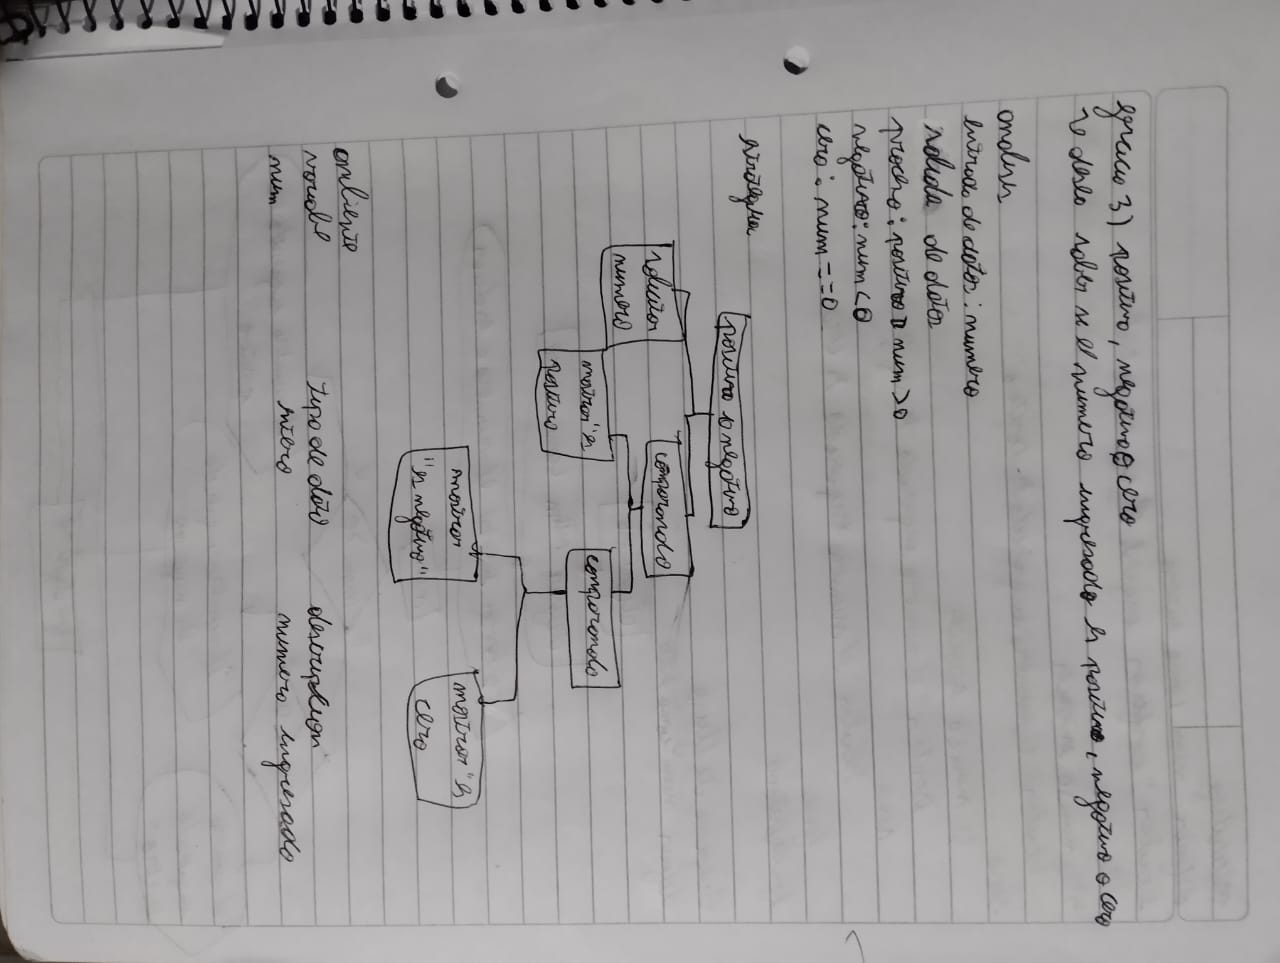 ejercicio 3) positivo, negativo o cero
se desea saber si el numero ingresado es positivo, negativo o cero
analisis
entrada de datos: numero
salida de datos
proceso: positivo num >0
negativo: num <0
cero: num ==0
estrategia
positivo o negativo
solicitar
numero
comparando
mostrar "es
positivo
comparando
mostrar
"es negativo"
mostrar "es
cero
ambiente
variable tipo de dato descripcion
num entero numero ingresado